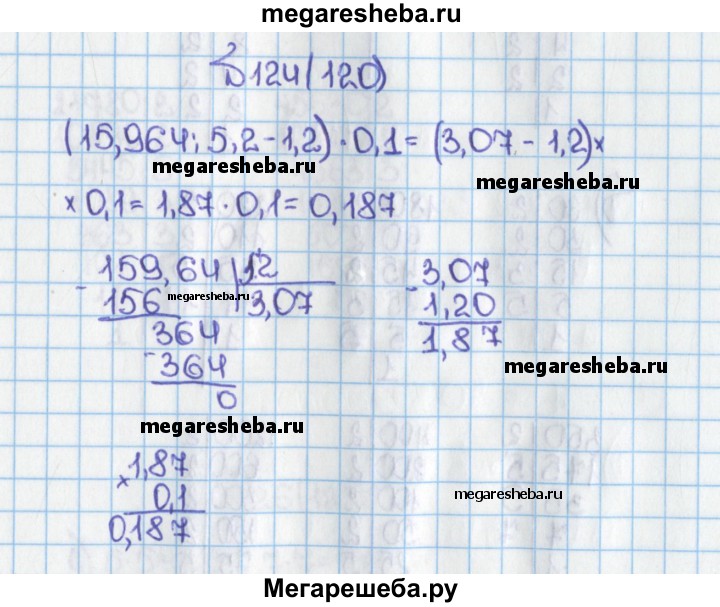 megaresheba.ru
Д 124(120)
(15,964 : 5,2 - 1,2) · 0,1 = (3,07 - 1,2) ×
megaresheba.ru megaresheba.ru
× 0,1 = 1,87 · 0,1 = 0,187
- 159,64
156 megaresheba.ru 3,07
364
- 364
0
- 3,07
1,20
1,87
megaresheba.ru
megaresheba.ru
× 1,87
0,1
0,187
megaresheba.ru
Мегарешеба.ру